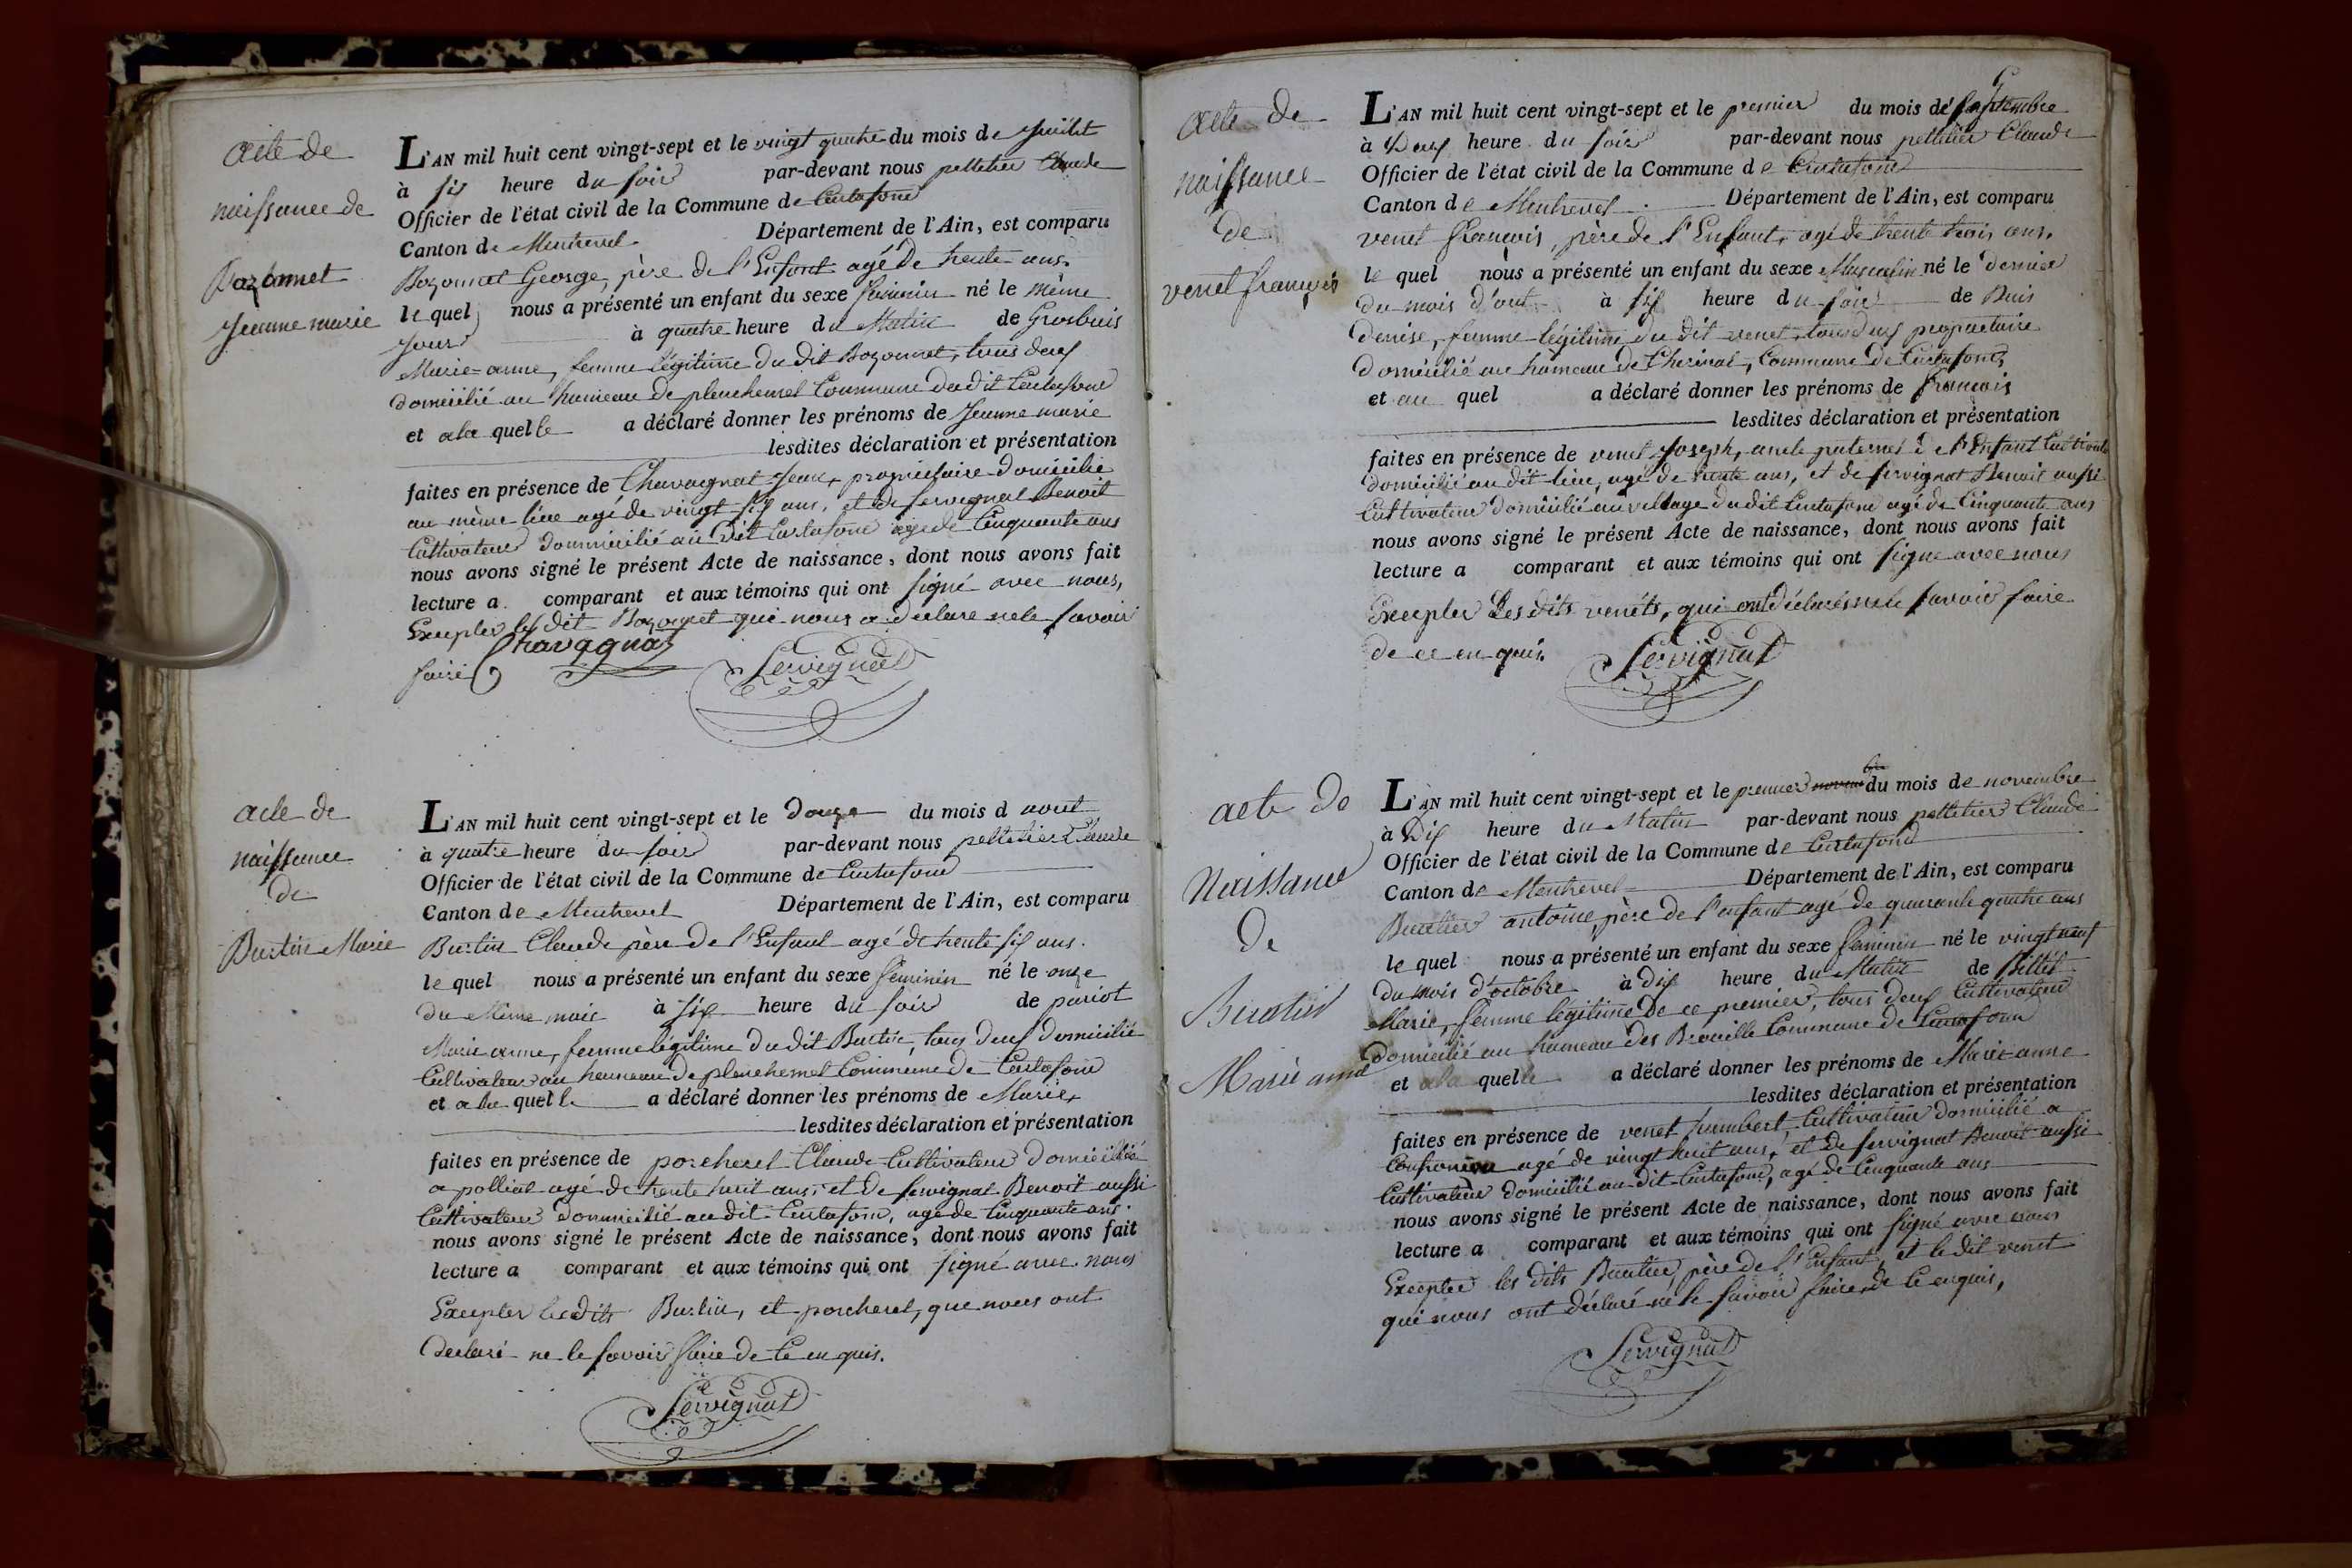 acte de
naissance de
Bozonnet
Jeanne marie
L'AN mil huit cent vingt-sept et le vingt quatre du mois de Juillet
à six heure du soir par-devant nous pelletier Claude
Officier de l'état civil de la Commune de Curtafond
Canton de Montrevel Département de l'Ain, est comparu
Bozonnet George, père de l'Enfant agé de trente ans.
le quel nous a présenté un enfant du sexe feminin né le même
jour à quatre heure du Matin de Grosbuis
Marie-anne, femme légitime du dit Bozonnet, tous deux
domicilié au hameau de planchemel Commune du dit Curtafond
et a la quelle a déclaré donner les prénoms de Jeanne marie
lesdites déclaration et présentation
faites en présence de Chavagnat Jean, propriétaire domicilié
au même lieu agé de vingt six ans, et de servignat Benoit
Cultivateur dommicilié au dit Curtafond agé de Cinquante ans
nous avons signé le présent Acte de naissance, dont nous avons fait
lecture a comparant et aux témoins qui ont signé avec nous,
Excepter le dit Bozonnet qui nous a declare ne le savoir
faire Chavagnat Servignat
acte de
naissance
de
Burtin Marie
L'AN mil huit cent vingt-sept et le douze du mois d aout
à quatre heure du soir par-devant nous pelletier Claude
Officier de l'état civil de la Commune de Curtafond
Canton de Montrevel Département de l'Ain, est comparu
Burtin Claude père de l'Enfant agé de trente six ans.
le quel nous a présenté un enfant du sexe feminin né le onze
du même mois à six heure du soir de pariot
Marie anne, femme légitime du dit Burtin, tous deux domicilié
Cultivateur au hameau de planchemel Commune de Curtafond
et a la quelle a déclaré donner les prénoms de Marie,
lesdites déclaration et présentation
faites en présence de porcheret Claude Cultivateur domicilié
a polliat agé de trente huit ans, et de servignat Benoit aussi
Cultivateur dommicilié au dit Curtafond, agé de Cinquante ans.
nous avons signé le présent Acte de naissance, dont nous avons fait
lecture a comparant et aux témoins qui ont signé avec nous
Excepter lesdits Burtin, et porcheret, que nous ont
declaré ne le savoir faire de ce en quis.
Servignat
acte de
naissance
de
venet françois
L'AN mil huit cent vingt-sept et le premier du mois de septembre
à Deux heure du soir par-devant nous pelletier Claude
Officier de l'état civil de la Commune de Curtafond
Canton de Montrevel Département de l'Ain, est comparu
venet francois, père de l'Enfant, agé de trente trois ans.
le quel nous a présenté un enfant du sexe Masculin né le dernier
du mois d'out à six heure du soir de Buis
denise, femme légitime du dit venet, tous deux propriétaire
domicilié au hameau de Cherinal, Commune de Curtafond,
et au quel a déclaré donner les prénoms de francois
lesdites déclaration et présentation
faites en présence de venet Joseph, oncle paternel de l'Enfant Cultivateur
domicilié au dit lieu, agé de trente ans, et de servignat Benoit aussi
Cultivateur domicilié au village du dit Curtafond agé de Cinquante ans
nous avons signé le présent Acte de naissance, dont nous avons fait
lecture a comparant et aux témoins qui ont signe avec nous
Excepter Les dits venéts, qui ont déclarés ne le savoir faire
de ce en quis. Servignat
acte de
Naissance
de
Buathier
Marie anne
L'AN mil huit cent vingt-sept et le premier du mois de novembre
à Dix heure du Matin par-devant nous pelletier Claude
Officier de l'état civil de la Commune de Curtafond
Canton de Montrevel Département de l'Ain, est comparu
Buatier antoine, père de l'enfant agé de quarante quatre ans
le quel nous a présenté un enfant du sexe feminin né le vingt neuf
du mois d'octobre à dix heure du Matin de Billet
Marie, femme légitime de ce premier, tous deux Cultivateur
domicilié au hameau des Brouille Commune de Curtafond
et a la quelle a déclaré donner les prénoms de Marie anne
lesdites déclaration et présentation
faites en présence de venet humbert Cultivateur domicilié a
Confrançon agé de vingt huit ans, et de servignat Benoit aussi
Cultivateur domicilié au dit Curtafond, agé de Cinquante ans
nous avons signé le présent Acte de naissance, dont nous avons fait
lecture a comparant et aux témoins qui ont signé avec nous
Excepter les dits Buatier, père de l'Enfant, et le dit venet
qui nous ont déclaré ne le savoir faire, de ce enquis,
Servignat